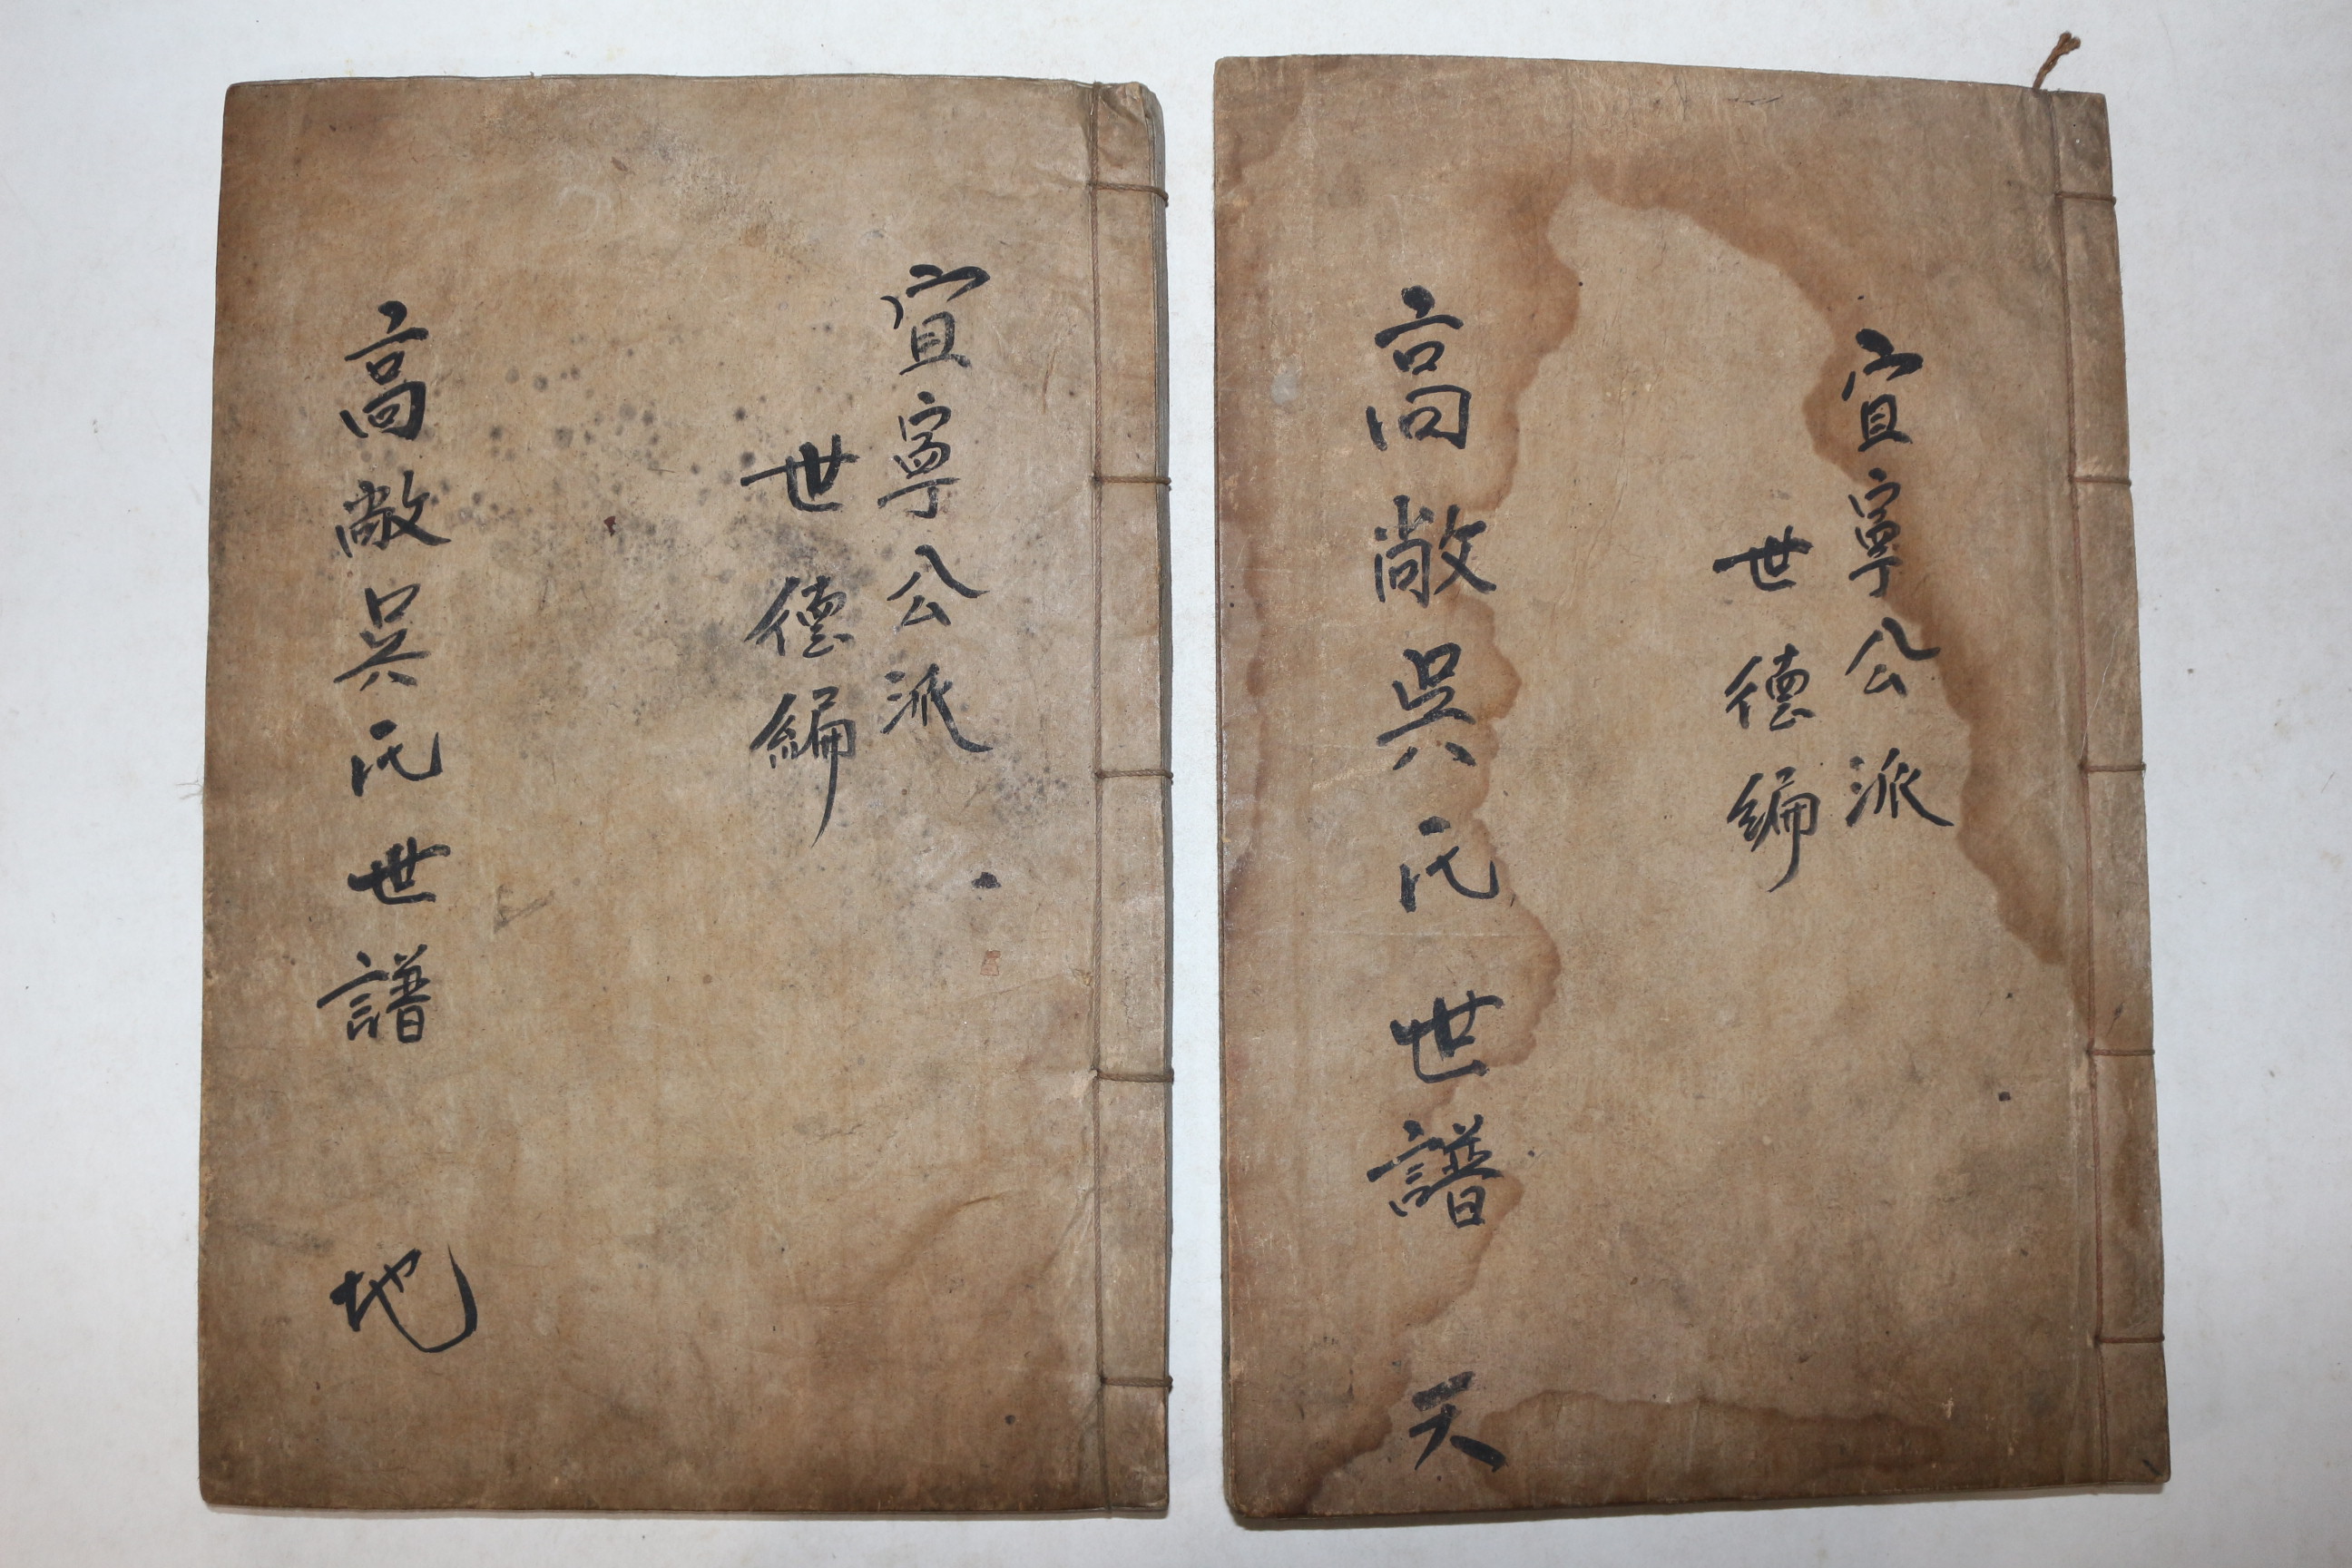 宜寧公派
世德編
高敞吳氏世譜 天
宜寧公派
世德編
高敞吳氏世譜 地